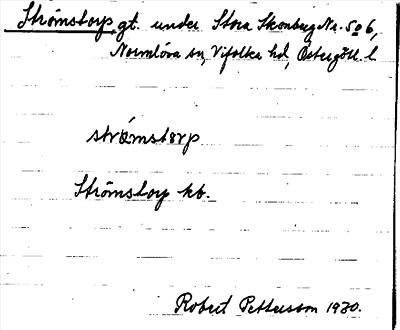 Strömstorp, gt. under Stora Skenberg Nr. 5 o 6,
Normlösa sn, Vifolka hd, Östergötl. l
strömstorp
Strömstorp kb.
Robert Pettersson 1930.